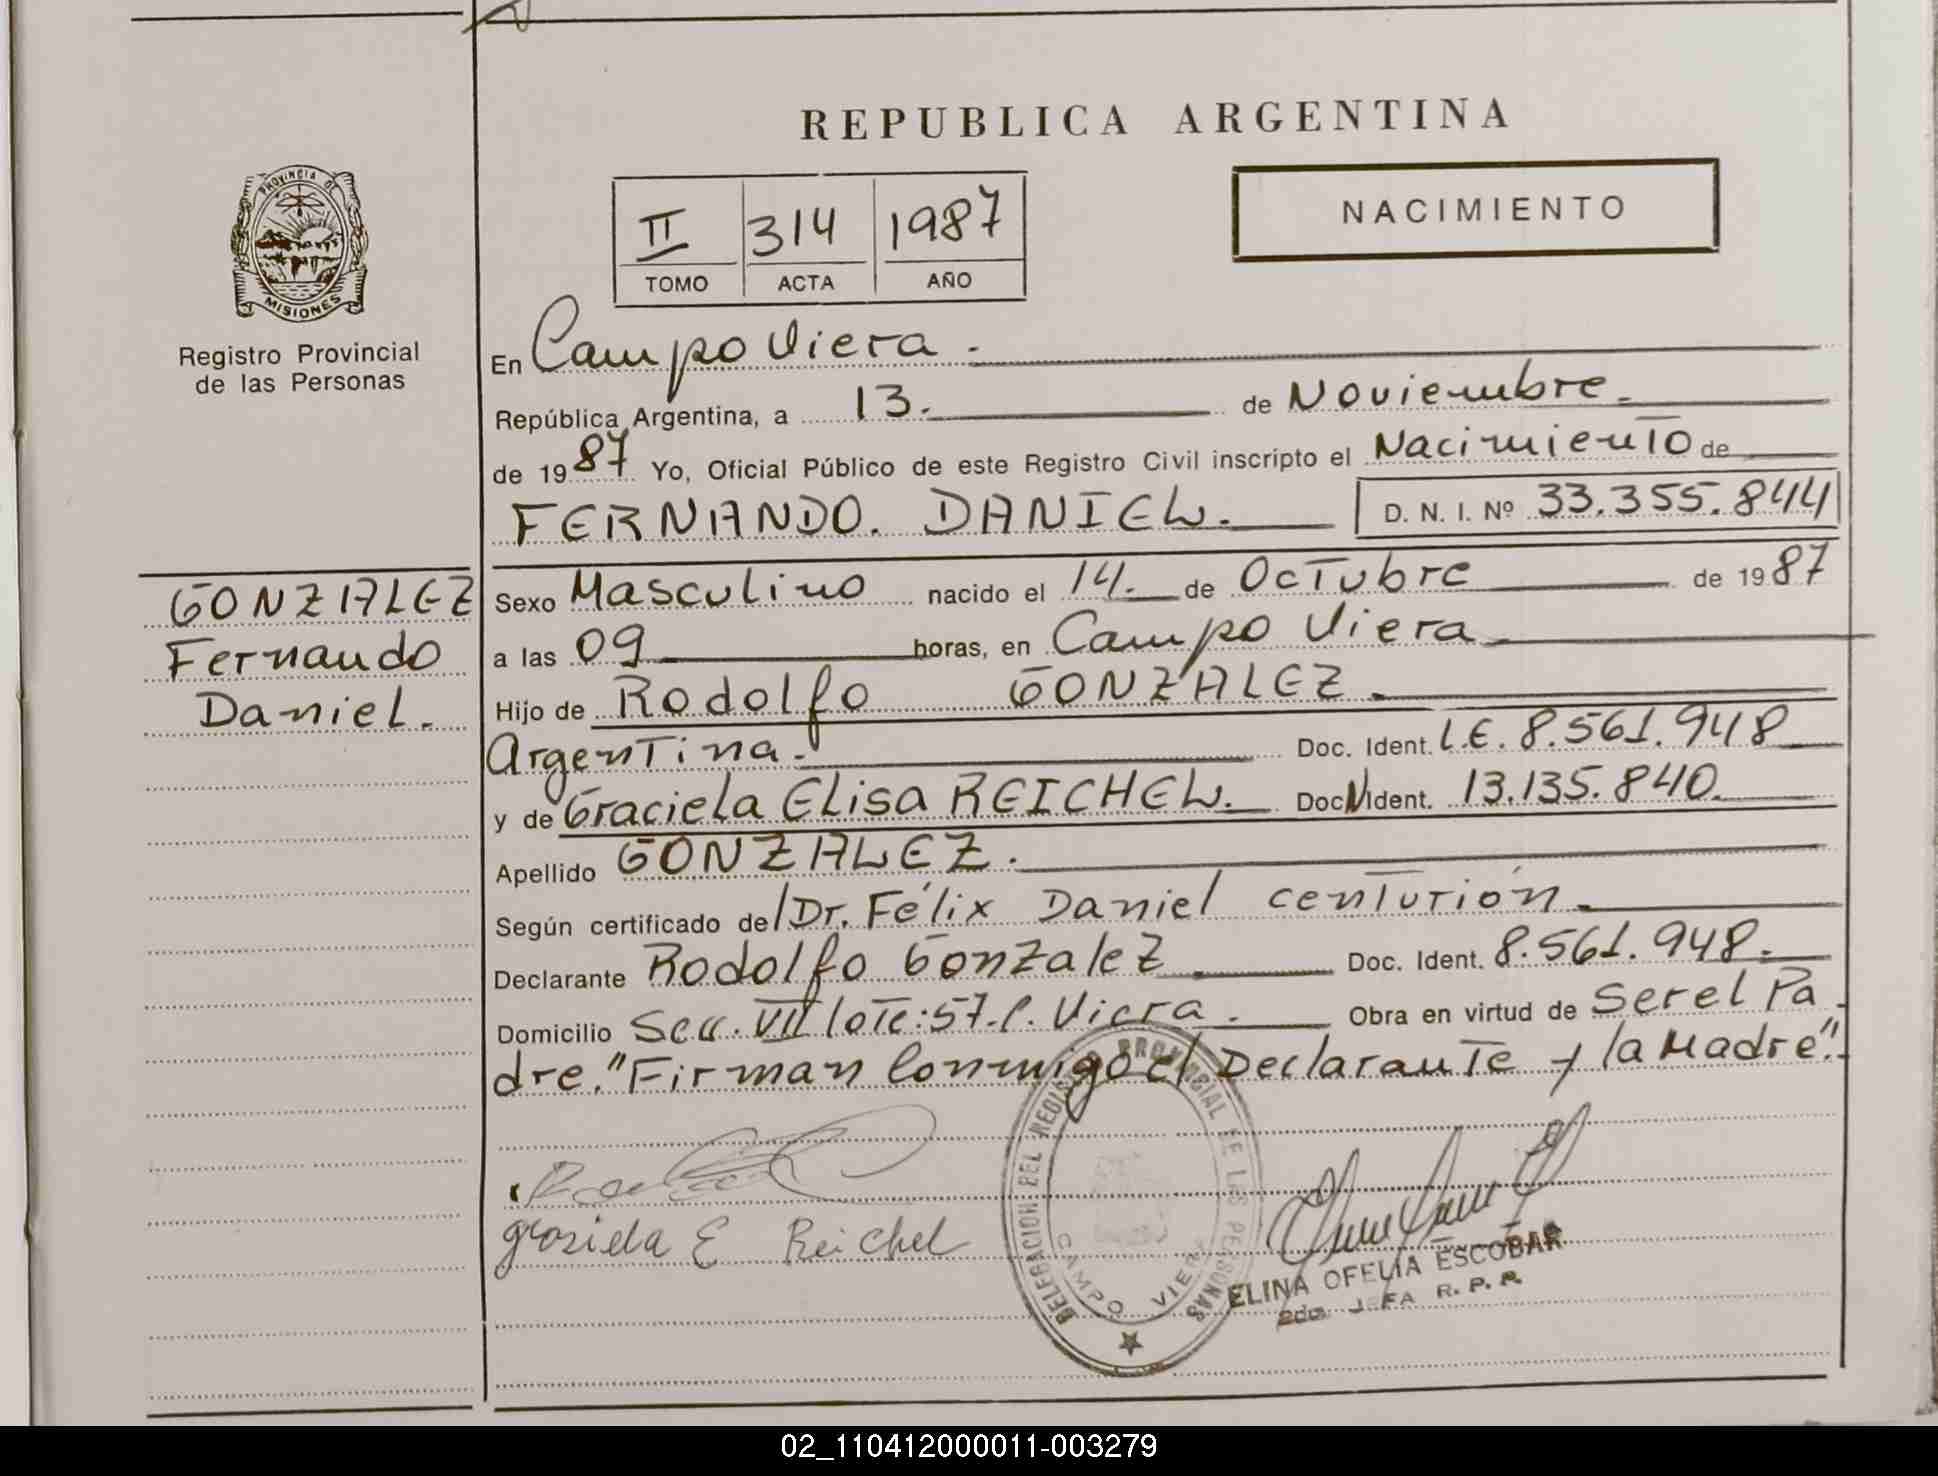 REPUBLICA ARGENTINA
PROVINCIA DE
MISIONES
Registro Provincial
de las Personas
II 314 1987
TOMO ACTA AÑO
NACIMIENTO
En Campo Viera.
República Argentina, a 13. de Noviembre.
de 1987 Yo, Oficial Público de este Registro Civil inscripto el Nacimiento de
FERNANDO. DANIEL. D. N. I. Nº 33.355.844
GONZALEZ
Fernando
Daniel.
Sexo Masculino nacido el 14. de Octubre de 1987
a las 09 horas, en Campo Viera
Hijo de Rodolfo GONZALEZ.
Argentina. Doc. Ident. L.E. 8.561.948
y de Graciela Elisa REICHEL. Doc N Ident. 13.135.840.
Apellido GONZALEZ.
Según certificado de/Dr. Félix Daniel centurión.
Declarante Rodolfo Gonzalez Doc. Ident. 8.561.948.
Domicilio Secc. VII lote:57.C. Viera. Obra en virtud de Ser el Pa
dre."Firman Conmigo el Declarante y la Madre".
Graciela E Reichel
DELEGACION DEL REGISTRO PROVINCIAL DE LAS PERSONAS
CAMPO VIERA
ELINA OFELIA ESCOBAR
2da. JEFA R. P. P.
02_110412000011-003279